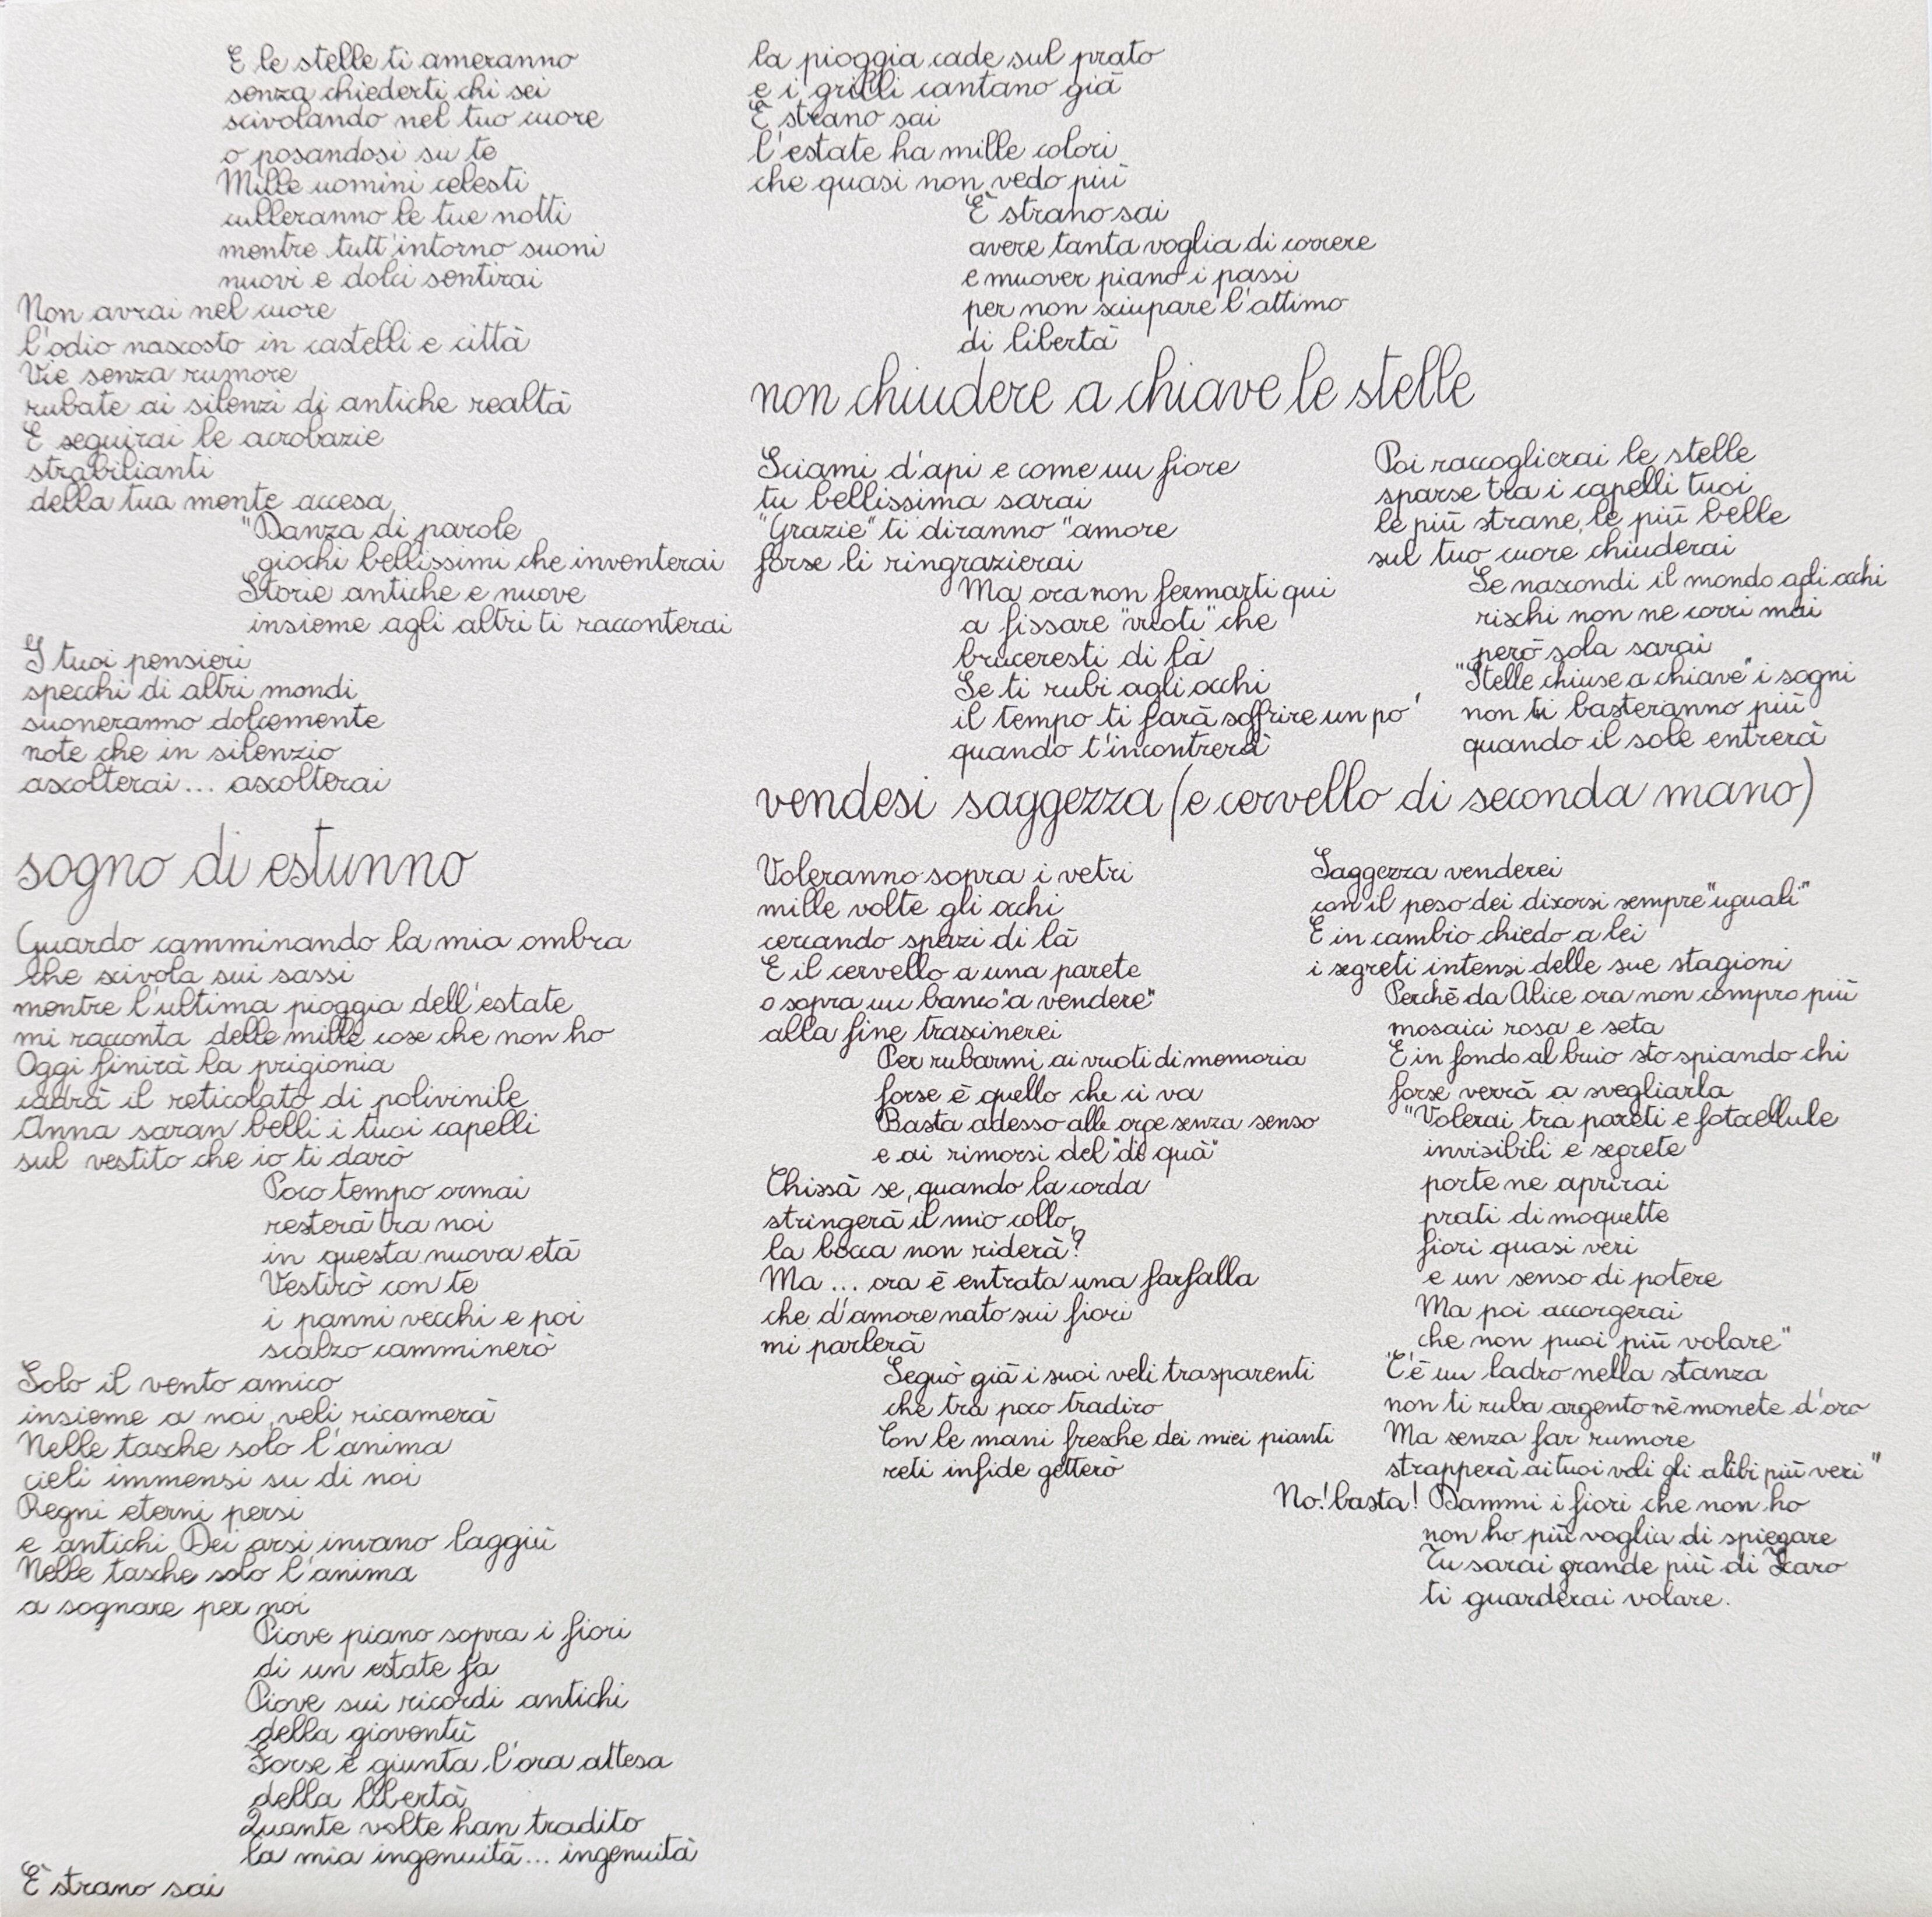 E le stelle ti ameranno
senza chiederti chi sei
scivolando nel tuo cuore
o posandosi su te
Mille uomini celesti
culleranno le tue notti
mentre tutt'intorno suoni
nuovi e dolci sentirai
Non avrai nel cuore
l'odio nascosto in castelli e città
Vie senza rumore
rubate ai silenzi di antiche realtà
E seguirai le acrobazie
strabilianti
della tua mente accesa
"Danza di parole
giochi bellissimi che inventerai
Storie antiche e nuove
insieme agli altri ti racconterai
I tuoi pensieri
specchi di altri mondi
suoneranno dolcemente
note che in silenzio
ascolterai... ascolterai
sogno di estunno
Guardo camminando la mia ombra
che scivola sui sassi
mentre l'ultima pioggia dell'estate
mi racconta delle mille cose che non ho
Oggi finirà la prigionia
cadrà il reticolato di polivinile
Anna saran belli i tuoi capelli
sul vestito che io ti darò
Poco tempo ormai
resterà tra noi
in questa nuova età
Vestirò con te
i panni vecchi e poi
scalzo camminerò
Solo il vento amico
insieme a noi veli ricamerà
Nelle tasche solo l'anima
cieli immensi su di noi
Regni eterni persi
e antichi Dei arsi invano laggiù
Nelle tasche solo l'anima
a sognare per noi
Piove piano sopra i fiori
di un estate fa
Piove sui ricordi antichi
della gioventù
Forse è giunta l'ora attesa
della libertà
Quante volte han tradito
la mia ingenuità... ingenuità
È strano sai
la pioggia cade sul prato
e i grilli cantano già
È strano sai
l'estate ha mille colori
che quasi non vedo più
È strano sai
avere tanta voglia di correre
e muover piano i passi
per non sciupare l'attimo
di libertà
non chiudere a chiave le stelle
Sciami d'api e come un fiore
tu bellissima sarai
"Grazie" ti diranno "amore
forse li ringrazierai
Ma ora non fermarti qui
a fissare "vuoti" che
bruceresti di là
Se ti rubi agli occhi
il tempo ti farà soffrire un po'
quando t'incontrerà
Poi raccoglierai le stelle
sparse tra i capelli tuoi
le più strane, le più belle
sul tuo cuore chiuderai
Se nascondi il mondo agli occhi
rischi non ne corri mai
però sola sarai
"Stelle chiuse a chiave" i sogni
non ti basteranno più
quando il sole entrerà
vendesi saggezza (e cervello di seconda mano)
Voleranno sopra i vetri
mille volte gli occhi
cercando spazi di là
E il cervello a una parete
o sopra un banco "a vendere"
alla fine trascinerei
Per rubarmi ai vuoti di memoria
forse è quello che ci va
Basta adesso alle orge senza senso
e ai rimorsi del "di quà"
Chissà se, quando la corda
stringerà il mio collo,
la bocca non riderà?
Ma ... ora è entrata una farfalla
che d'amore nato sui fiori
mi parlerà
Seguò già i suoi veli trasparenti
che tra poco tradiro
Con le mani fresche dei miei pianti
reti infide getterò
Saggezza venderei
con il peso dei discorsi sempre "uguali"
E in cambio chiedo a lei
i segreti intensi delle sue stagioni
Perchè da Alice ora non compro più
mosaici rosa e seta
E in fondo al buio sto spiando chi
forse verrà a svegliarla
"Volerai tra pareti e fotocellule
invisibili e segrete
porte ne aprirai
prati di moquette
fiori quasi veri
e un senso di potere
Ma poi accorgerai
che non puoi più volare"
"C'è un ladro nella stanza
non ti ruba argento nè monete d'oro
Ma senza far rumore
strapperà ai tuoi voli gli alibi più veri"
No! basta! Dammi i fiori che non ho
non ho più voglia di spiegare
Tu sarai grande più di Icaro
ti guarderai volare.